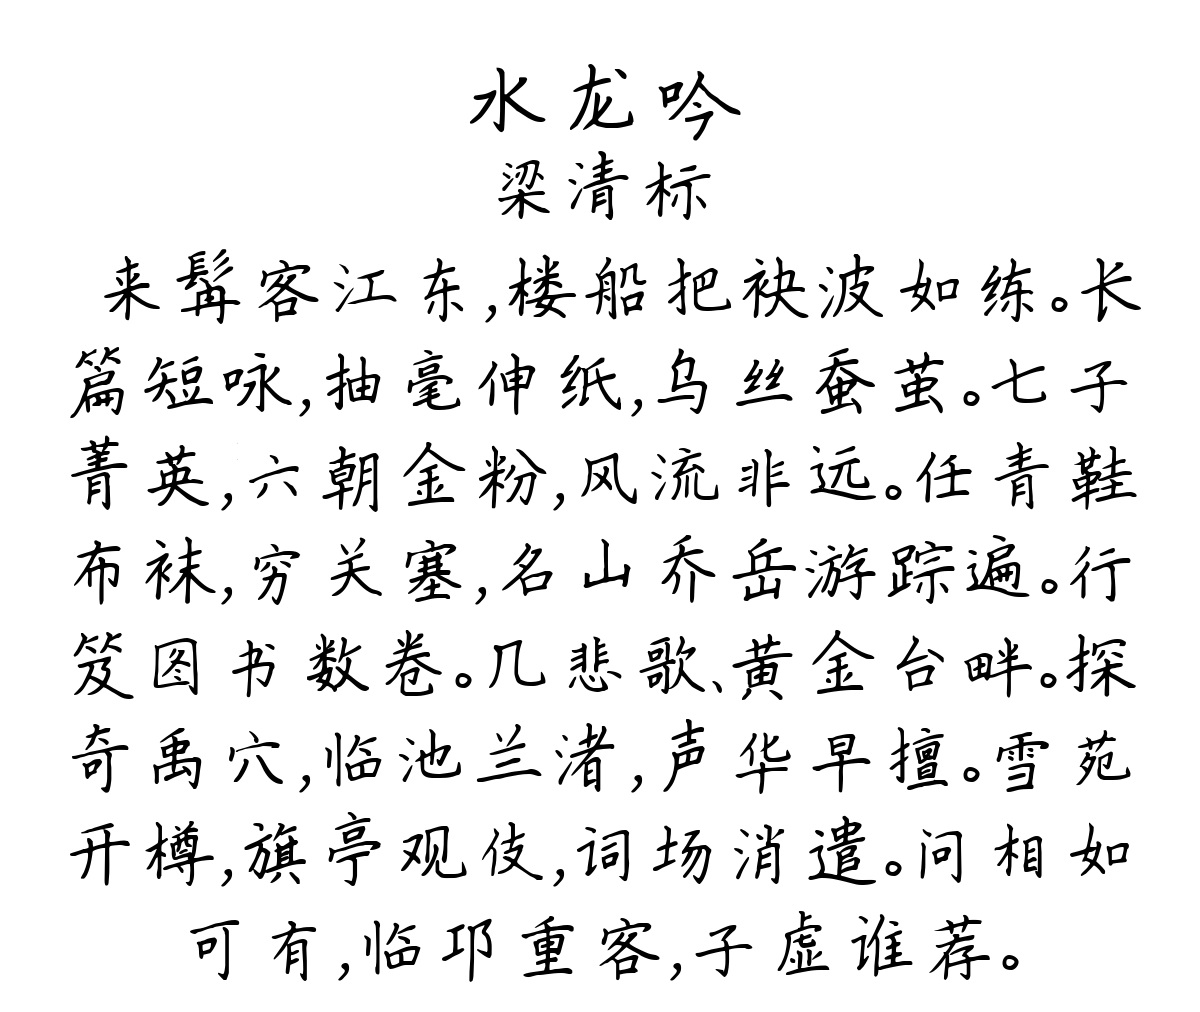 水龙吟
梁清标
来髯客江东,楼船把袂波如练。长
篇短咏,抽毫伸纸,乌丝蚕茧。七子
菁英,六朝金粉,风流非远。任青鞋
布袜,穷关塞,名山乔岳游踪遍。行
笈图书数卷。几悲歌、黄金台畔。探
奇禹穴,临池兰渚,声华早擅。雪苑
开樽,旗亭观伎,词场消遣。问相如
可有,临邛重客,子虚谁荐。